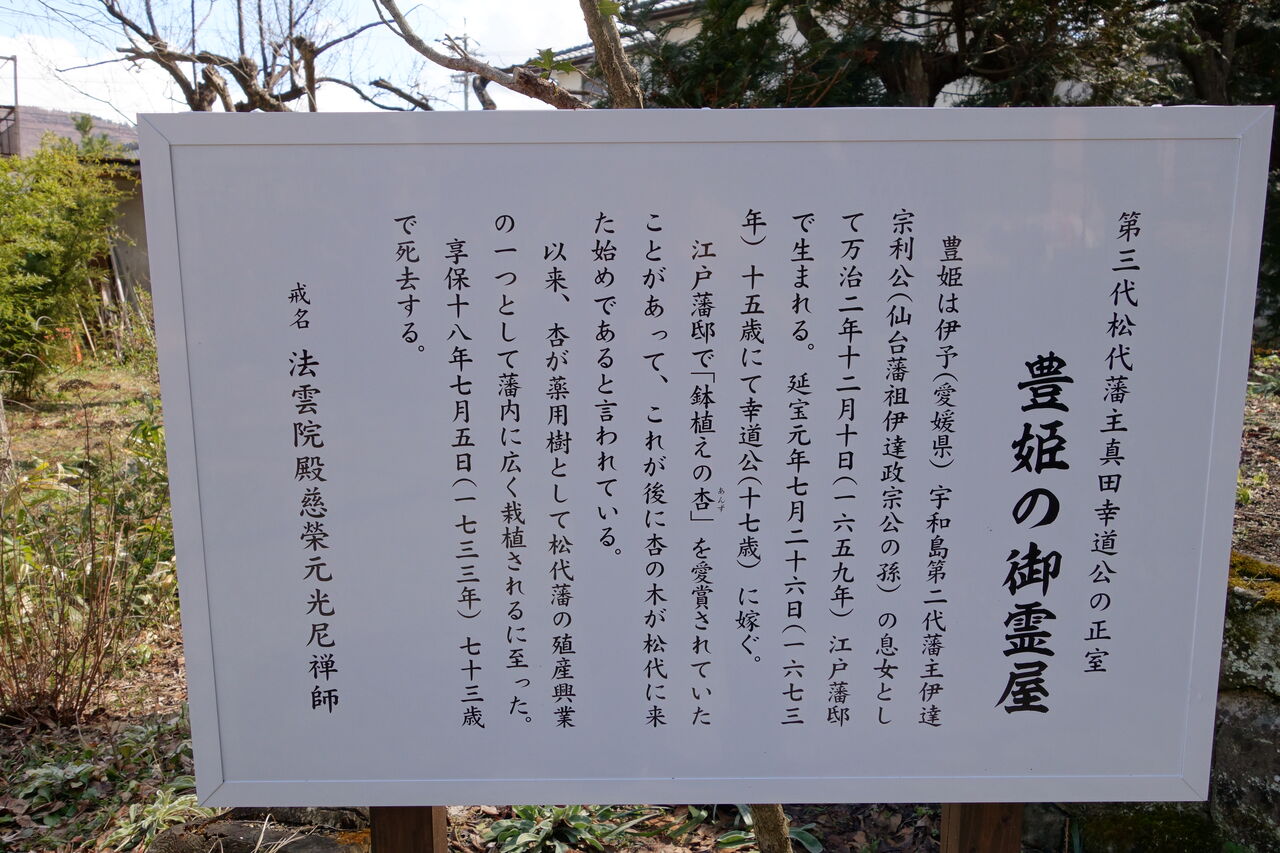 第三代松代藩主真田幸道公の正室
豊姫の御霊屋
豊姫は伊予(愛媛県)宇和島第二代藩主伊達
宗利公(仙台藩祖伊達政宗公の孫)の息女とし
て万治二年十二月十日(一六五九年)江戸藩邸
で生まれる。延宝元年七月二十六日(一六七三
年)十五歳にて幸道公(十七歳)に嫁ぐ。
江戸藩邸で「鉢植えの杏」を愛賞されていた
あんず
ことがあって、これが後に杏の木が松代に来
た始めであると言われている。
以来、杏が薬用樹として松代藩の殖産興業
の一つとして藩内に広く栽植されるに至った。
享保十八年七月五日(一七三三年)七十三歳
で死去する。
戒名 法雲院殿慈榮元光尼禅師